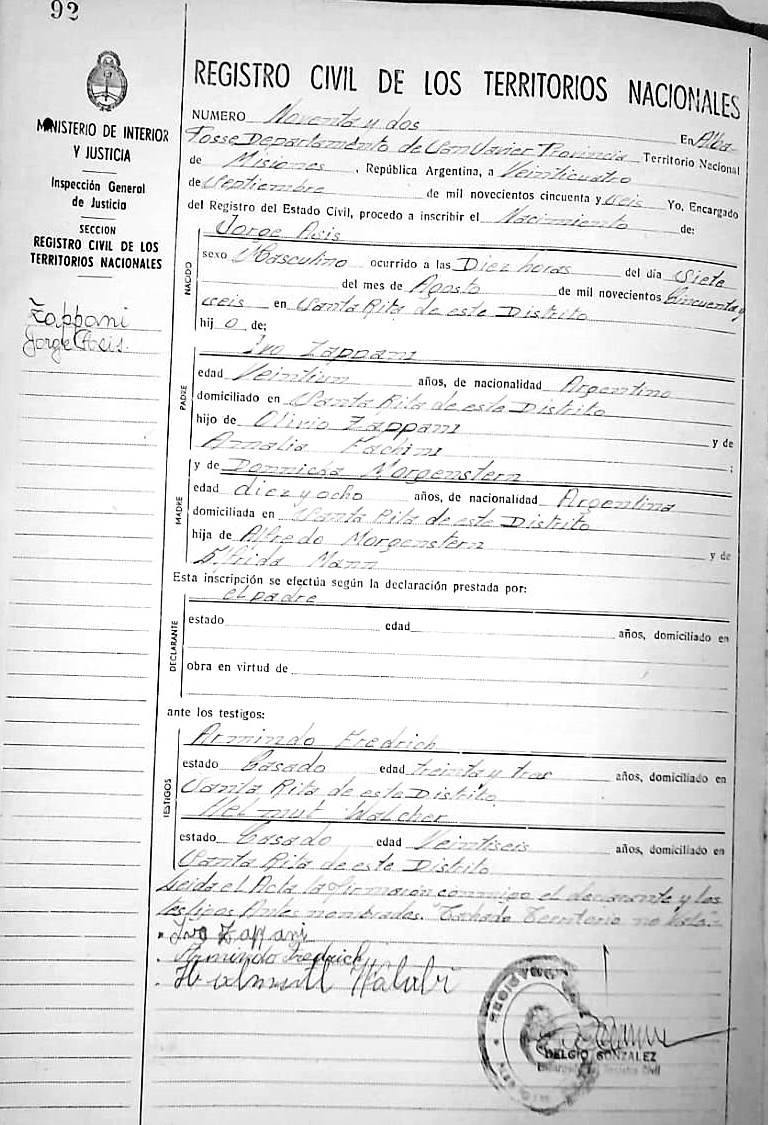 92
MINISTERIO DE INTERIOR
Y JUSTICIA
Inspección General
de Justicia
SECCION
REGISTRO CIVIL DE LOS
TERRITORIOS NACIONALES
Zappani
Jorge Asis.
REGISTRO CIVIL DE LOS TERRITORIOS NACIONALES
NUMERO Noventa y dos En Alba
Posse Departamento de San Javier Provincia Territorio Nacional
de Misiones, República Argentina, a Veinticuatro
de Septiembre de mil novecientos cincuenta y seis Yo, Encargado
del Registro del Estado Civil, procedo a inscribir el Nacimiento de:
NACIDO
Jorge Asis
sexo Masculino ocurrido a las Diez horas del día Siete
del mes de Agosto de mil novecientos Cincuenta y
seis en Santa Rita de este Distrito
hij o de;
PADRE
Ivo Zappani
edad Veintiun años, de nacionalidad Argentino
domiciliado en Santa Rita de este Distrito
hijo de Olivio Zappani y de
Amalia Fachini ;
MADRE
y de Morgenstern
edad diez y ocho años, de nacionalidad Argentina
domiciliada en Santa Rita de este Distrito
hija de Alfredo Morgenstern y de
Elfrida Mann
Esta inscripción se efectúa según la declaración prestada por:
el padre
DECLARANTE
estado edad años, domiciliado en
obra en virtud de
ante los testigos:
TESTIGOS
Armindo Fredrich
estado Casado edad treinta y tres años, domiciliado en
Santa Rita de este Distrito.
Helmut Walcher
estado Casado edad Veintiseis años, domiciliado en
Santa Rita de este Distrito
Leida el Acta la firmaron conmigo el declarante y los
testigos Antes nombrados. "Tachado Territorio no Vale".-
Ivo Zappani
Armindo Fredrich
DELCIO GONZALEZ
Encargado del Registro Civil